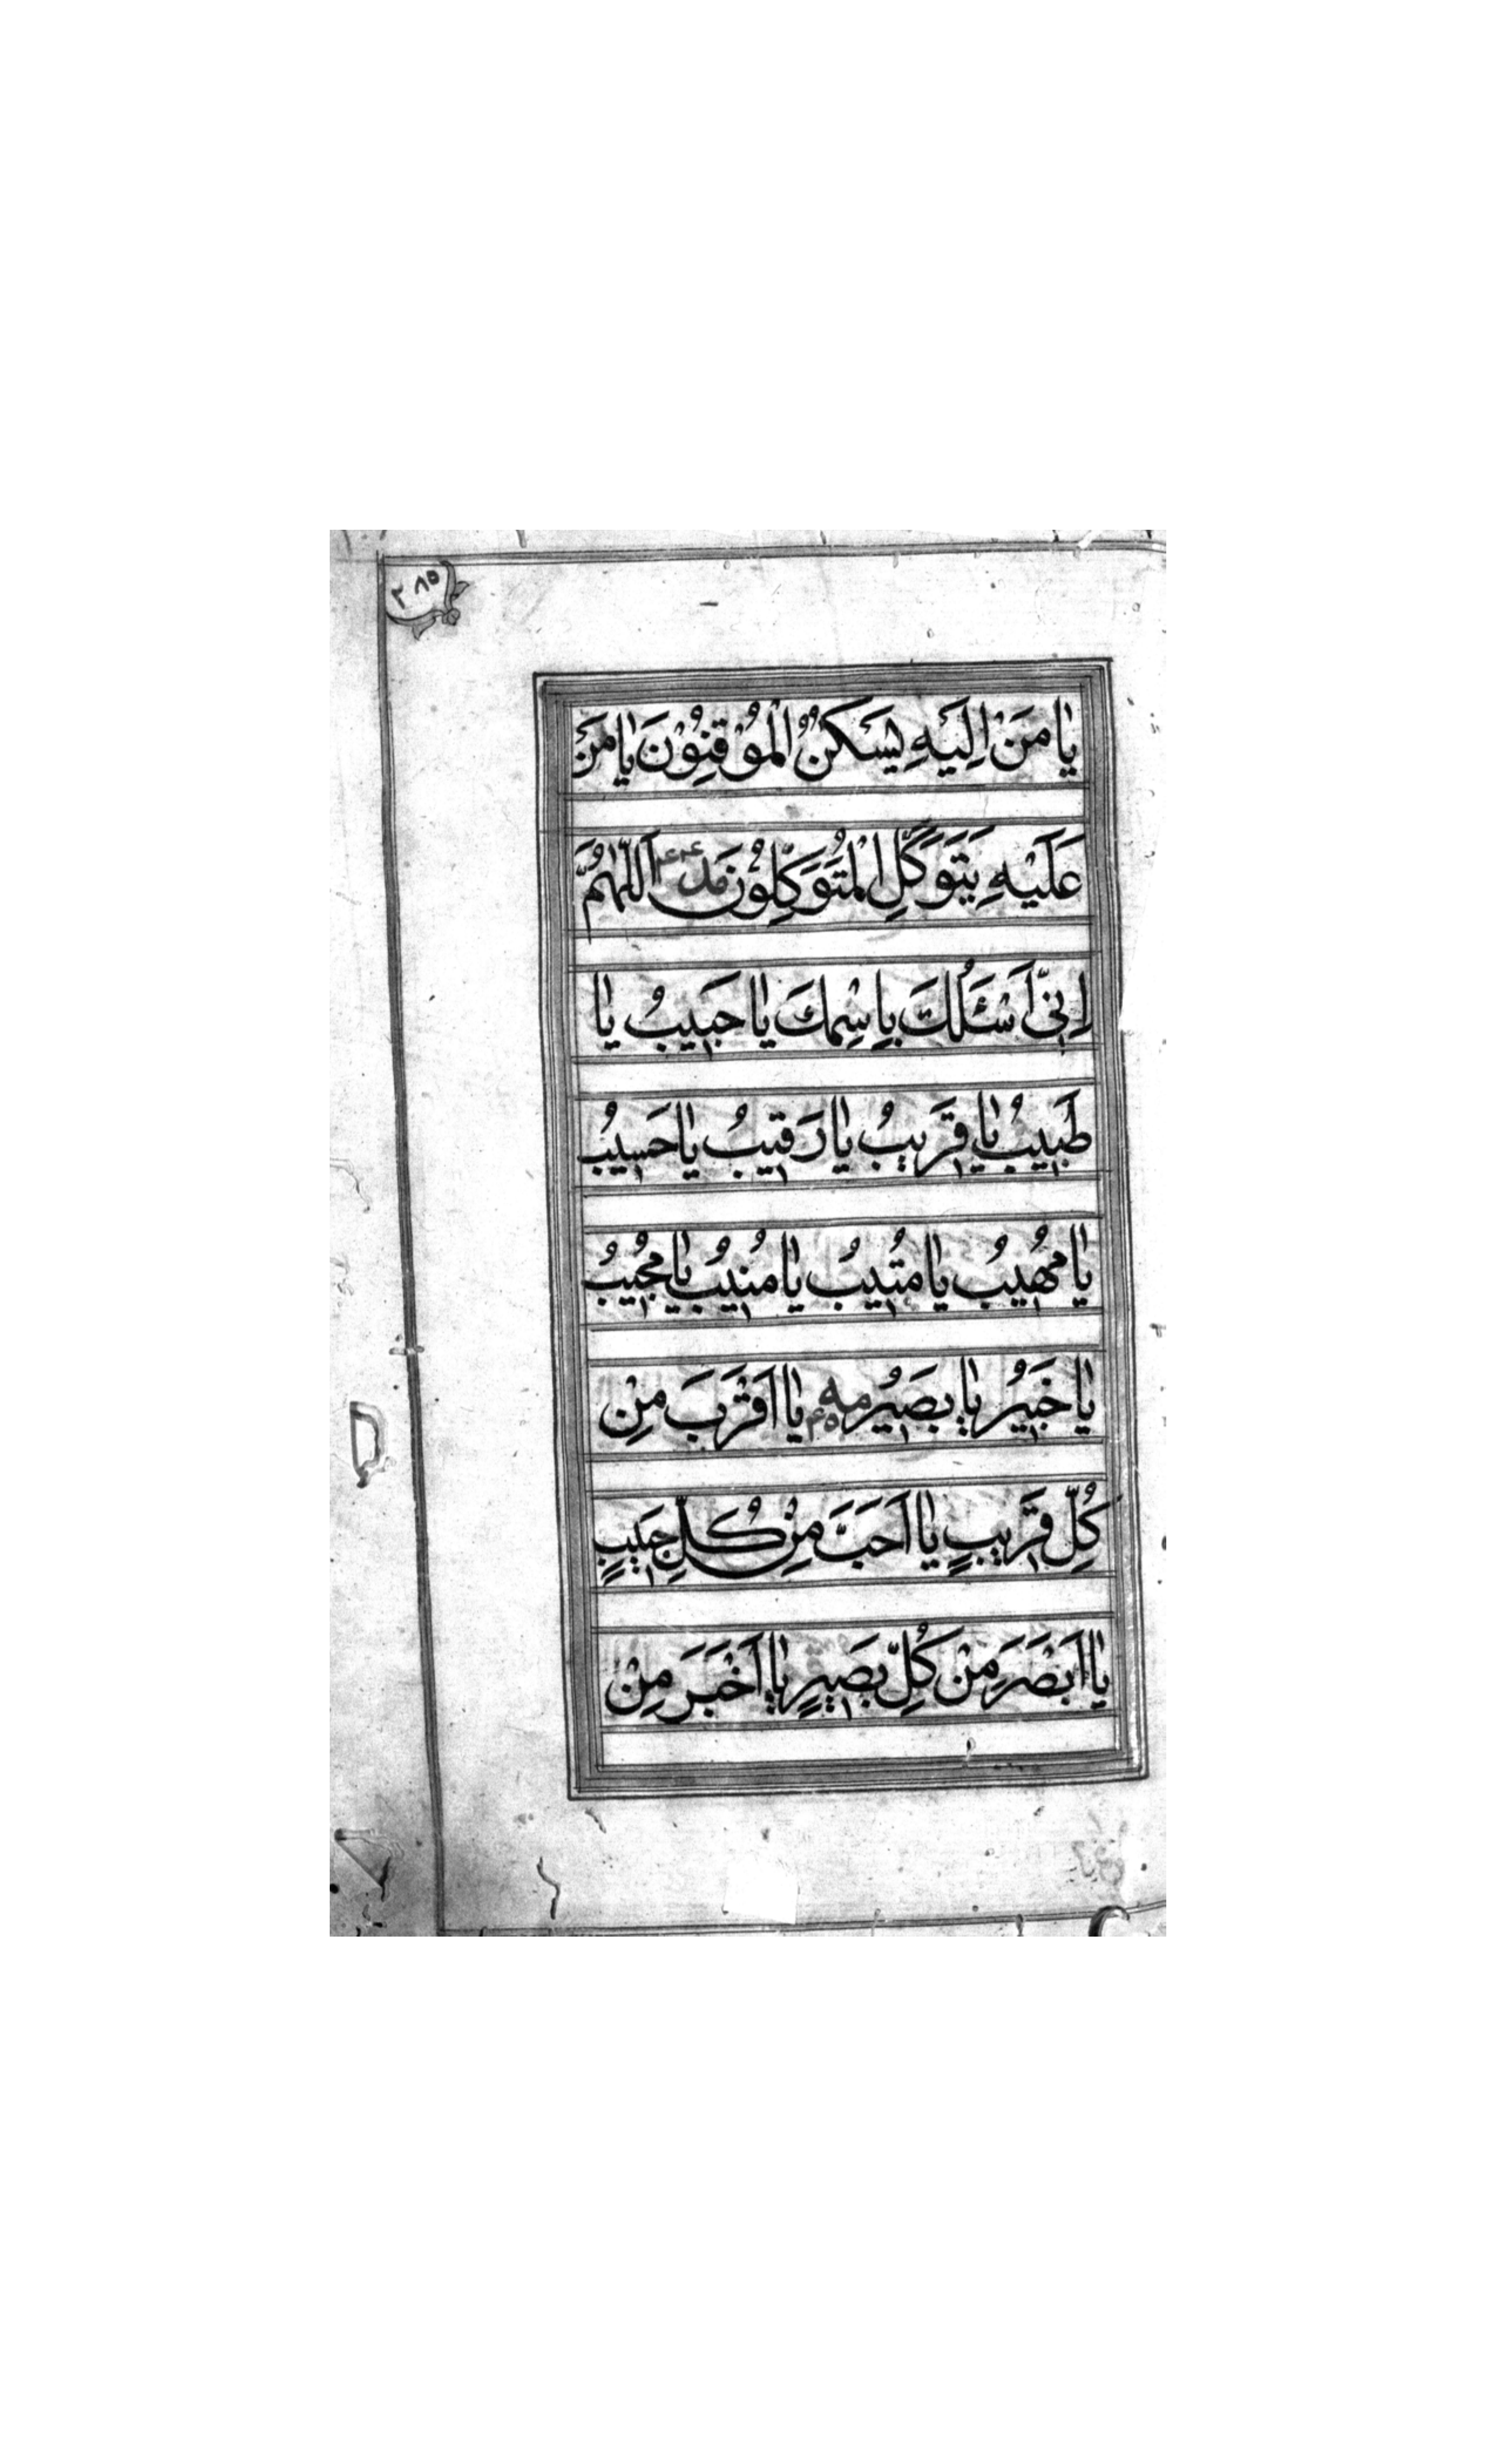 ٢٨٥
يا مَنْ اِلَيْهِ يَسْكُنُ الْمُوْقِنُوْنَ يا مَنْ
عَلَيْهِ يَتَوَكَّلِ الْمُتَوَكِّلُوْنَ مد ۴۴ اَللّٰهُمَّ
اِنّى اَسْئَلُكَ بِاِسْمِكَ يا حَبيبُ يا
طَبيبُ يا قَريبُ يا رَقيبُ يا حَسيبُ
يا مُهيبُ يا مُثيبُ يا مُنيبُ يا مُجيبُ
يا خَبيرُ يا بَصيرُ مه ۴۵ يا اَقْرَبَ مِنْ
كُلِّ قَريبٍ يا اَحَبَّ مِنْ كُلِّ حَبيبٍ
يا اَبْصَرَ مِنْ كُلِّ بَصيرٍ يا اَخْبَرَ مِنْ